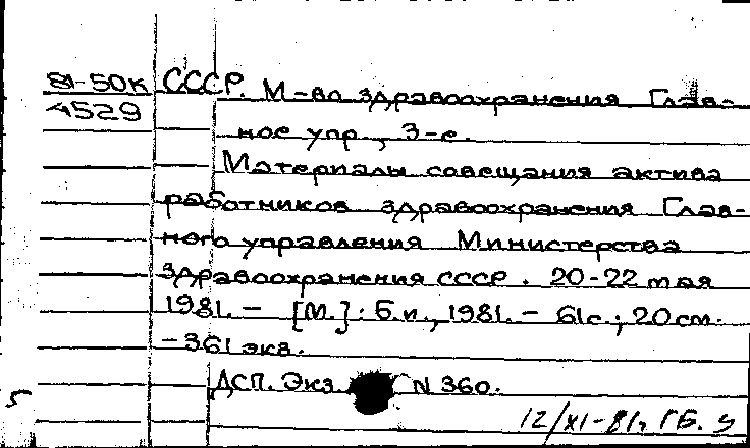 81-50К СССР. М-во здравоохранения Глав-
4529 ное упр., 3-е.
Материалы совещания актива
работников здравоохранения Глав-
ного управления Министерства
здравоохранения СССР. 20-22 мая
1981. – [М.]: Б.и., 1981. – 61 с.; 20 см.
– 361 экз.
ДСП. Экз. N 360.
5
12/XI-81г. ГБ. 9